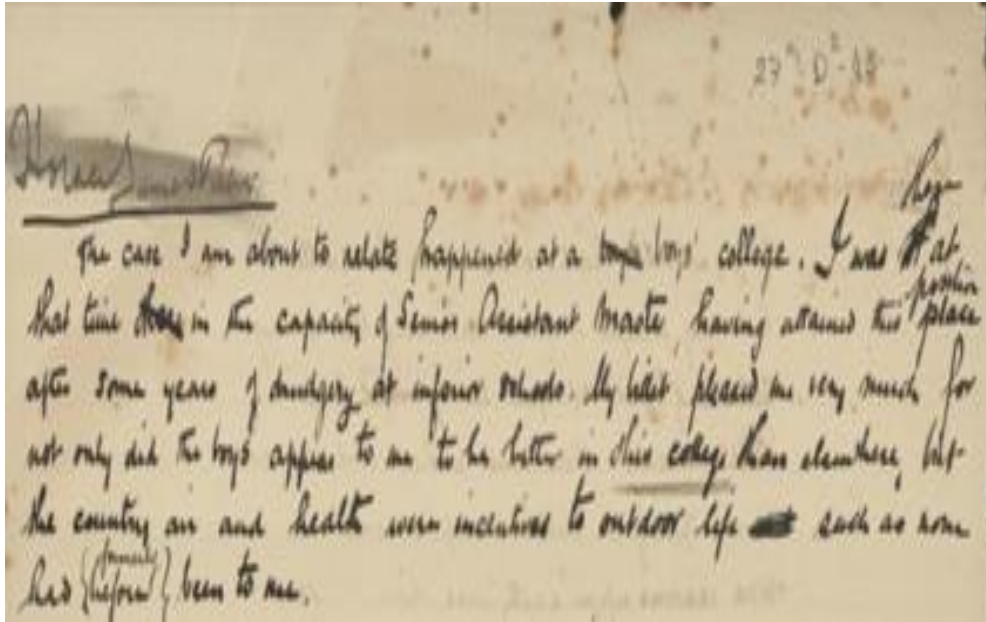 The case I am about to relate happened at a boys' college. I was at
here
that time in the capacity of Senior Assistant Master having attained this place
position
after some years of drudgery at inferior schools. My billet pleased me very much for
not only did the boys appear to me to be better in this college than elsewhere, but
the country air and health were incentives to outdoor life such as none
had {before} been to me.
formerly